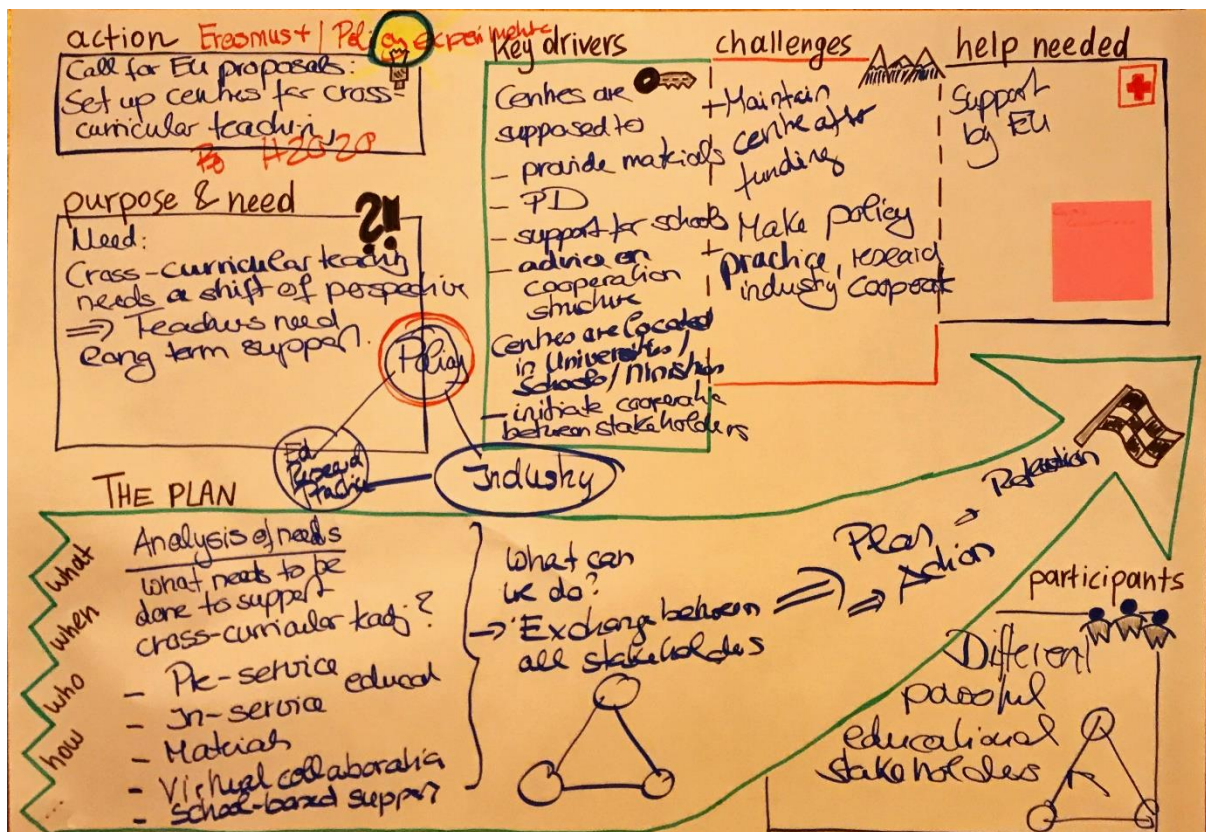 action Erasmus+ / Policy experiments
Call for EU proposals:
Set up centres for cross-
curricular teaching
H2020
purpose & need
?!!
Need:
Cross-curricular teaching
needs a shift of perspective
⇒ Teachers need
long term support.
Policy
Ed
Research
Practice
Industry
Key drivers
Centres are
supposed to
- provide materials
- PD
- support for schools
- advice on
cooperation
structure
Centres are located
in Universities /
Schools / Ministries
- initiate cooperation
between stakeholders
challenges
+ Maintain
centre after
funding
+ Make policy
practice, research
industry cooperate
help needed
Support
by EU
THE PLAN
what
when
who
how
...
Analysis of needs
What needs to be
done to support
cross-curricular teachg?
- Pre-service educat
- In-service
- Materials
- Virtual collaboration
- school-based support
What can
we do?
→ Exchange between
all stakeholders
⇒ Plan
⇒ Action
→ Reflection
participants
Different
educational
stakeholders